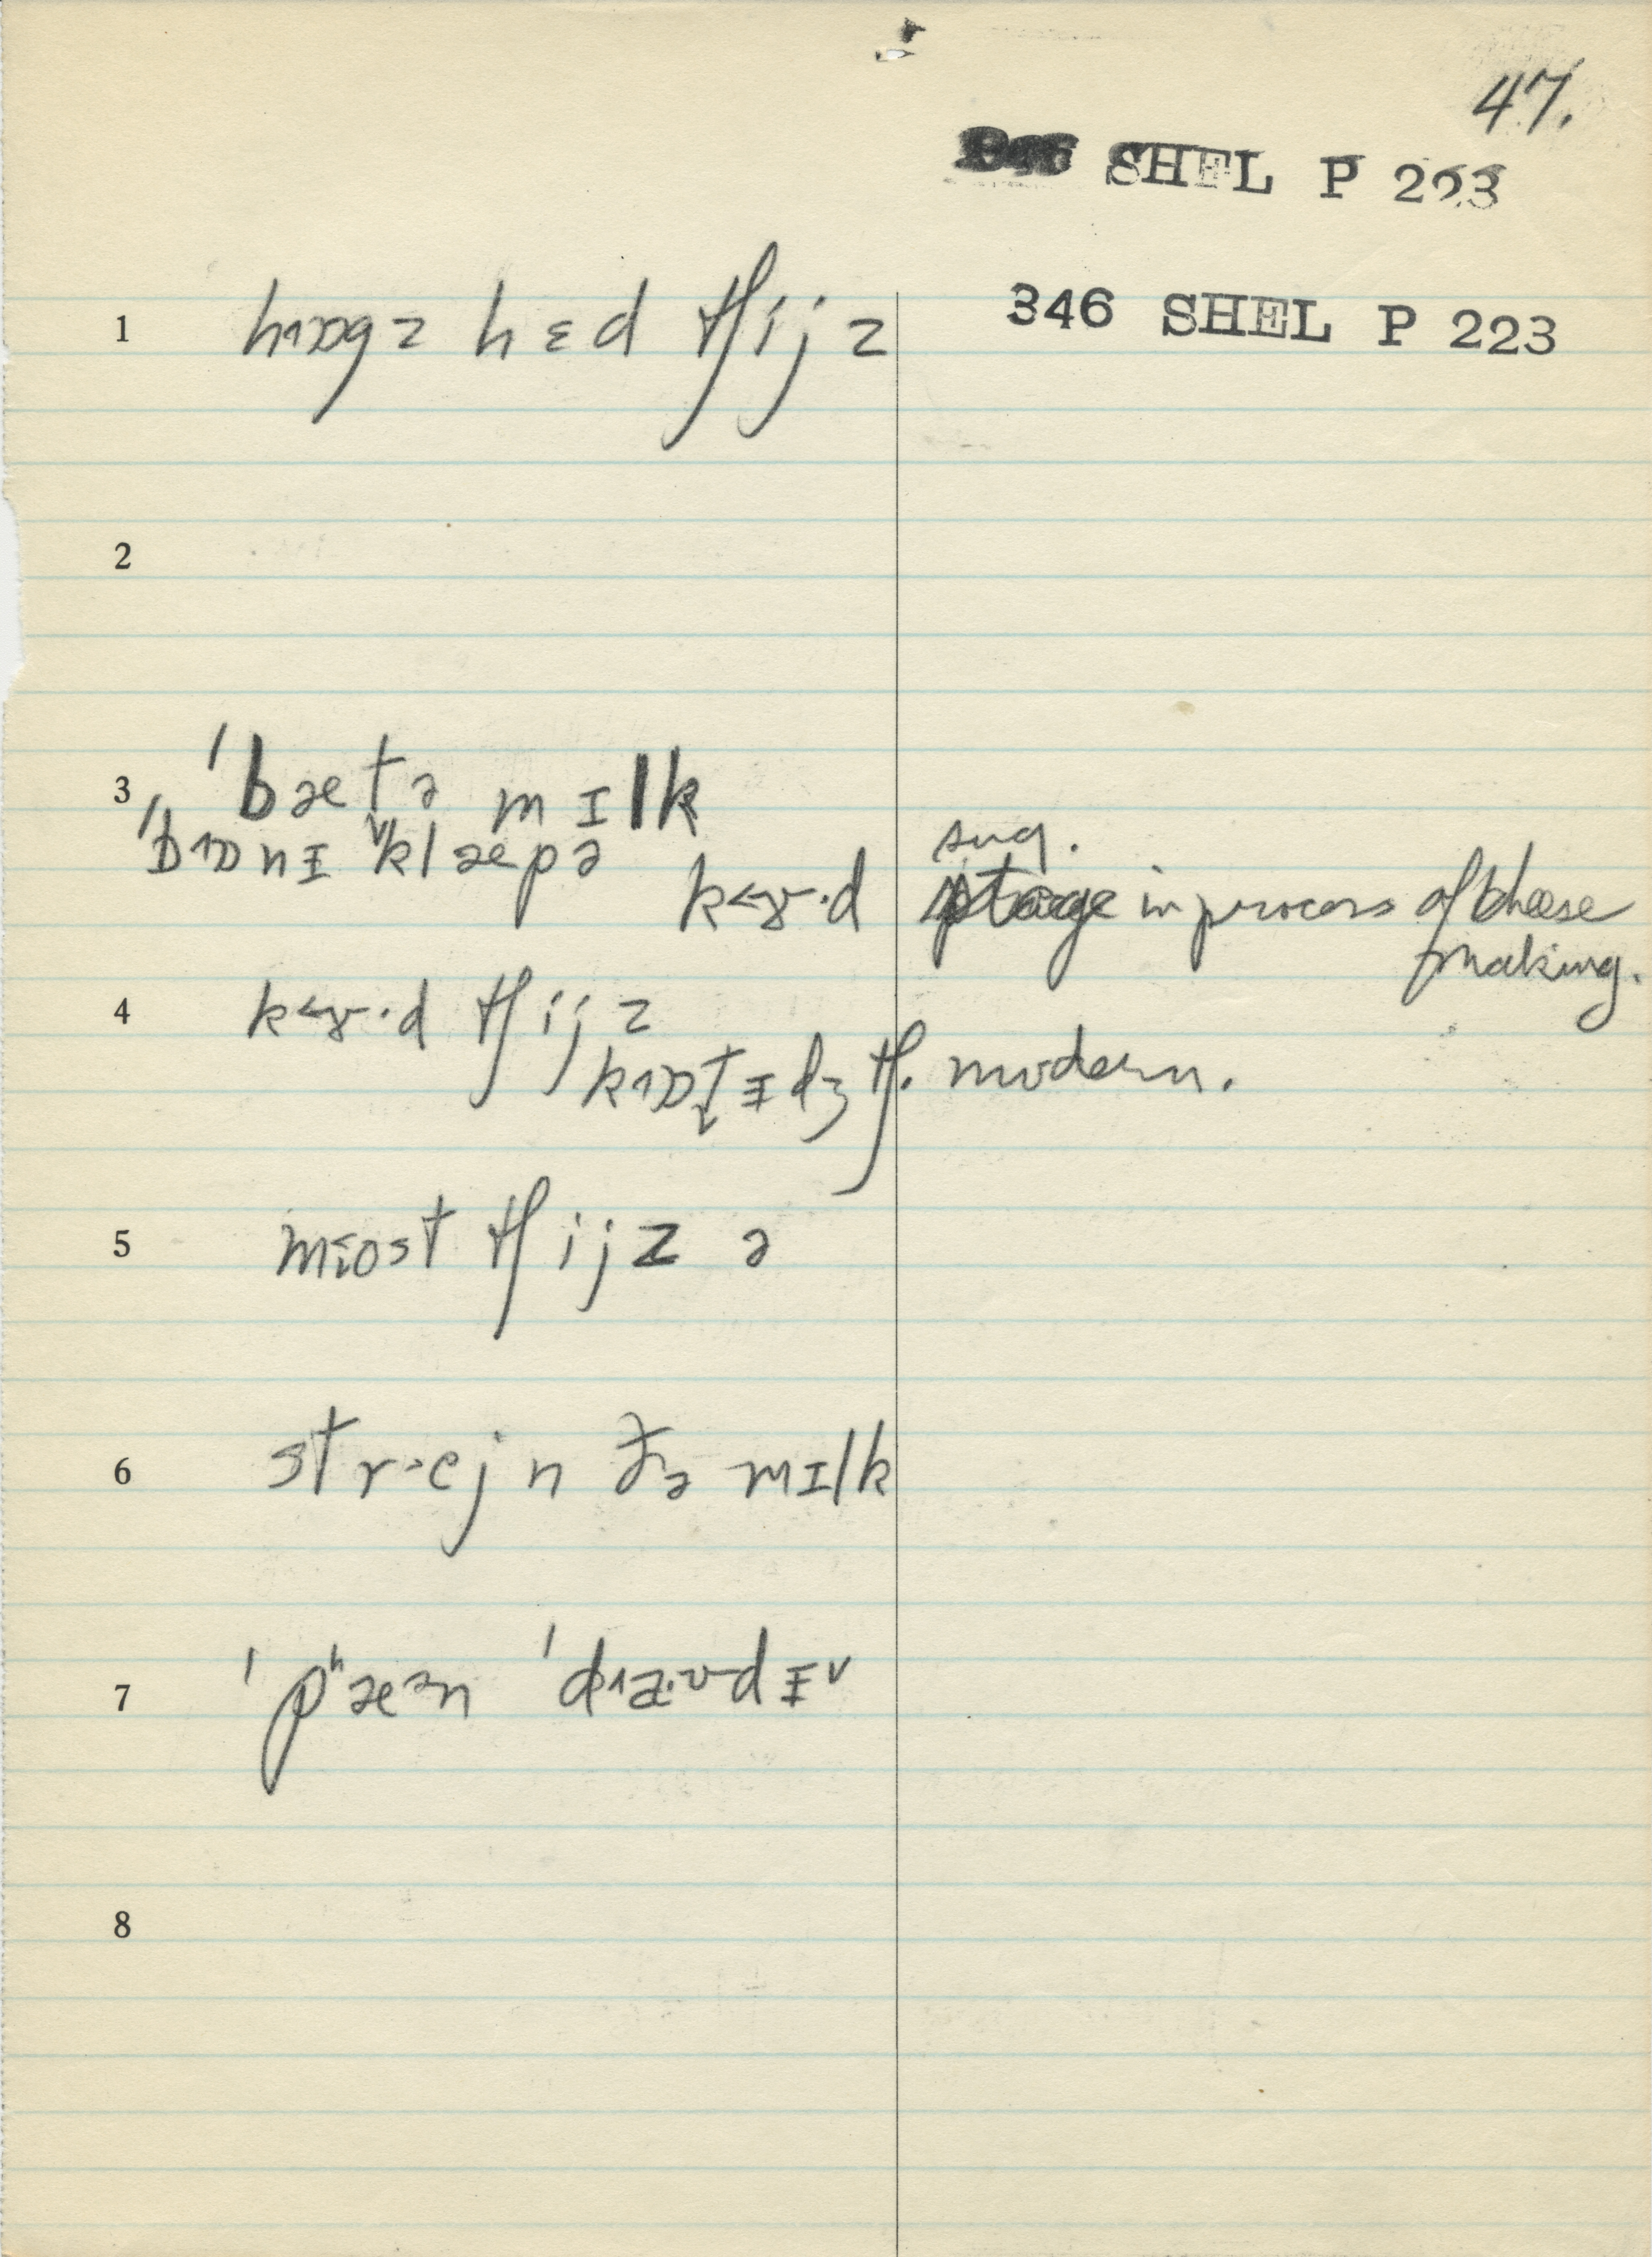 47.
346 SHEL P 223
346 SHEL P 223
1 hɒgz hɛd tʃijz
2
3 ˈbætə mɪlk
ˈbɒnɪ ˈklæpə
sug.
k<ɤ·d stage in process of cheese
making.
4 k<ɤ·d tʃijz
kɒtɪdʒ tʃ. modern.
5 most tʃijz ə
6 strejn ðə mɪlk
7 ˈpʰæən ˈdaʊdɪ
8